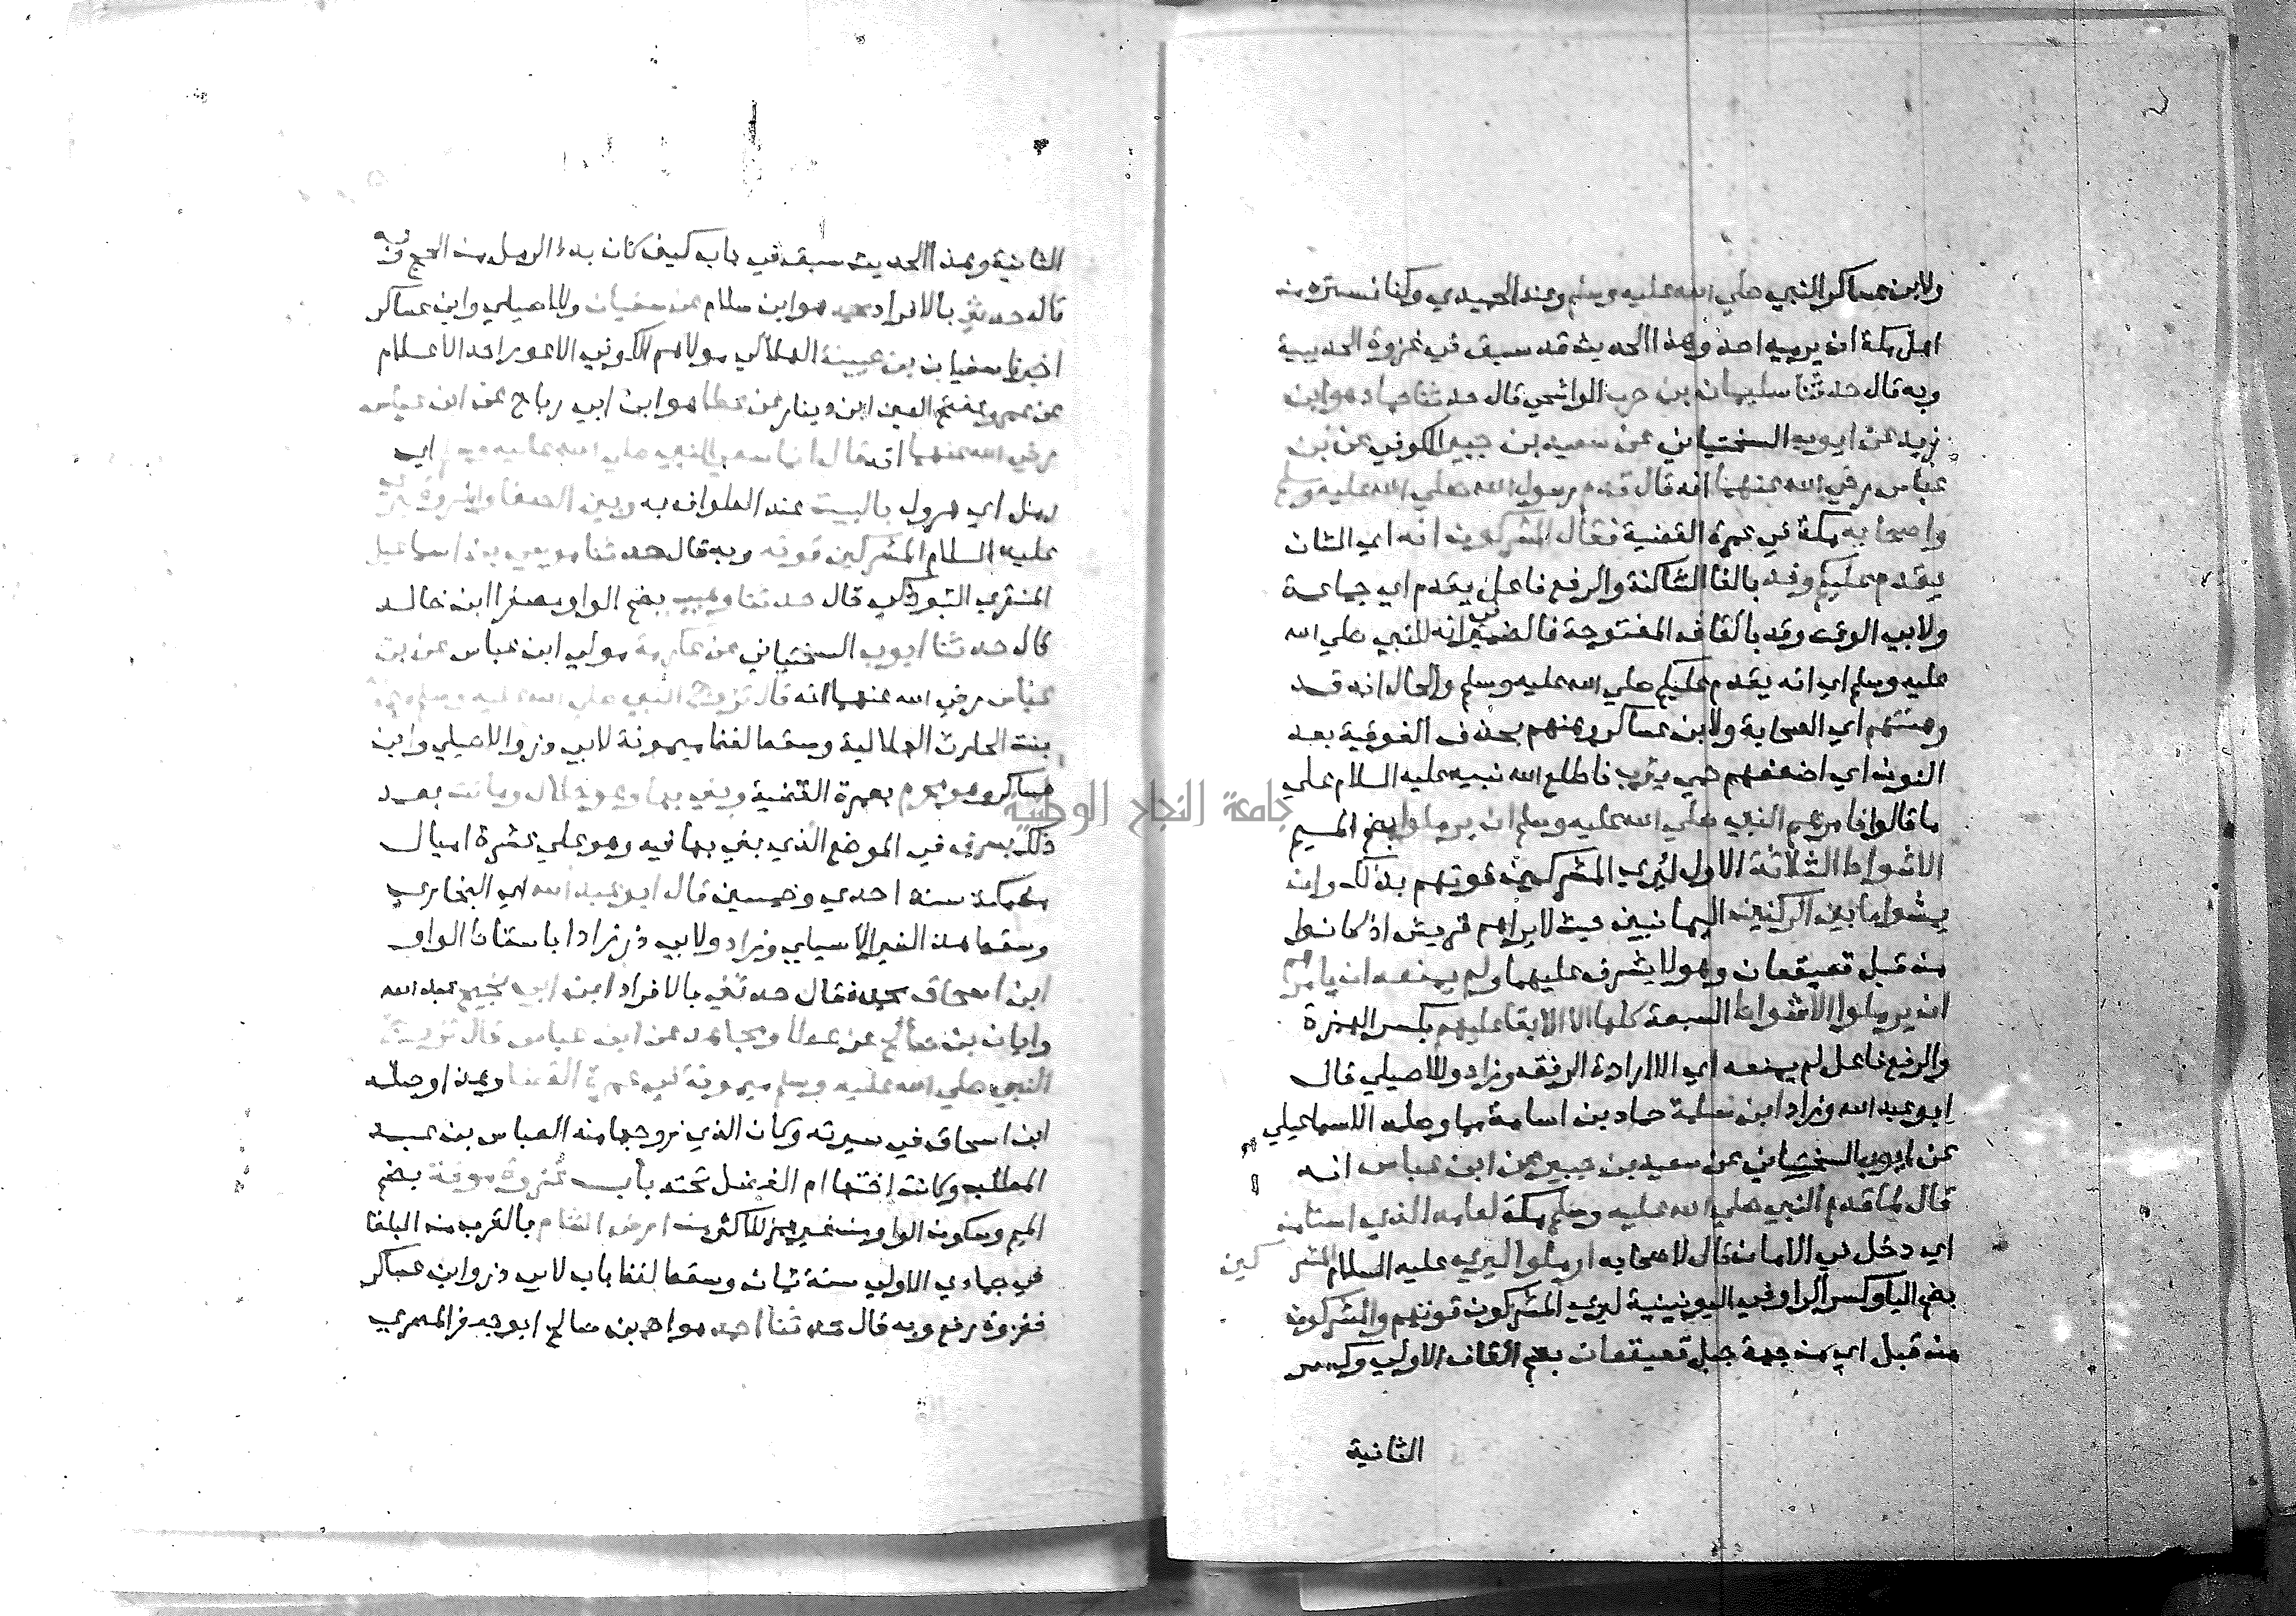 ولابن عساكر النبي صلي الله عليه وسلم وعند الحميدي وكنا نستره من
اهل مكة ان يرميه احد وهذا الحديث قد سبق في غزوة الحديبية
وبه قال حدثنا سليمان بن حرب الواشحي قال حدثنا حماد هو ابن
زيد عن ايوب السختياني عن سعيد بن جبير الكوفي عن بن
عباس رضي الله عنهما انه قال قدم رسول الله صلي الله عليه وسلم
واصحابه مكة في عمرة القضية فقال المشركون انه اي الشان
يقدم عليكم وفد بالفا الساكنة والرفع فاعل يقدم اي جماعة
ولابي الوقت وقد بالقاف المفتوحة فالضمير في انه للنبي صلي الله
عليه وسلم اي انه يقدم عليكم صلي الله عليه وسلم والحال انه قد
وهنتهم اي الصحابة ولابن عساكر وهنهم بحذف الفوقية بعد
النون اي اضعفهم حمي يثرب فاطلع الله نبيه عليه السلام علي
ما قالوا فامرهم النبي صلي الله عليه وسلم ان يرملوا بضم الميم
الاشواط الثلاثة الاول ليري المشركين قوتهم بذلك وان
يمشوا ما بين الركنين اليمانيين حيث لا يراهم قريش اذ كانوا
من قبل قعيقعان وهو لا يشرف عليهما ولم يمنعه ان يامرهم
ان يرملوا الاشواط السبعة كلها الا الابقا عليهم بكسر الهمزة
والرفع فاعل لم يمنعه اي الا ارادة الرفق وزاد وللاصيلي قال
ابو عبد الله وزاد ابن سلمة حماد بن اسامة مما وصله الاسماعيلي
عن ايوب السختياني عن سعيد بن جبير عن ابن عباس انه
قال لما قدم النبي صلي الله عليه وسلم مكة لعامه الذي استامن
اي دخل في الامان قال لاصحابه ارملوا ليري عليه السلام المشركين
بضم اليا وكسر الرا وفي اليونينية ليري المشركون قوتهم والمشركون
من قبل اي من جهة جبل قعيقعان بضم القاف الاولي وكسر
الثانية
الثانية وهذا الحديث سبق في باب كيف كان بدء الرمل من الحج وبه
قال حدثني بالافراد محمد هو ابن سلام عن سفيان وللاصيلي وابن عساكر
اخبرنا سفيان بن عيينة الهلالي مولاهم الكوفي الاعور احد الاعلام
عن عمرو بفتح العين ابن دينار عن عطا هو ابن ابي رباح عن ابن عباس
رضي الله عنهما انه قال انما سعي النبي صلي الله عليه وسلم اي
رمل اي هرول بالبيت عند الطواف به وبين الصفا والمروة ليري
عليه السلام المشركين قوته وبه قال حدثنا موسي بن اسماعيل
المنقري التبوذكي قال حدثنا وهيب بضم الواو مصغرا ابن خالد
قال حدثنا ايوب السختياني عن عكرمة مولي ابن عباس عن بن
عباس رضي الله عنهما انه قال تزوج النبي صلي الله عليه وسلم ميمونة
بنت الحارث الهلالية وسقط لفظ ميمونة لابي ذر والاصيلي وابن
عساكر وهو محرم بعمرة القضية وبني بها وهو حلال وماتت بعد
ذلك بسرف في الموضع الذي بني بها فيه وهو علي عشرة اميال
من مكة سنة احدي وخمسين قال ابو عبد الله اي البخاري
وسقط هذا لغير الاصيلي وزاد ولابي ذر زاد باسقاط الواو
ابن اسحاق محمد فقال حدثني بالافراد ابن ابي نجيح عبد الله
وابان بن صالح عن عطا ومجاهد عن ابن عباس قال تزوج
النبي صلي الله عليه وسلم ميمونة في عمرة القضا وهذا وصله
ابن اسحاق في سيرته وكان الذي زوجها منه العباس بن عبد
المطلب وكانت اختها ام الفضل تحته باب غزوة موتة بضم
الميم وسكون الواو من غير همز للاكثر من ارض الشام بالقرب من البلقا
في جمادي الاولي سنة ثمان وسقط لفظ باب لابي ذر وابن عساكر
فغزوة رفع وبه قال حدثنا احمد هو احمد بن صالح ابو جعفر المصري
جامعة النجاح الوطنية